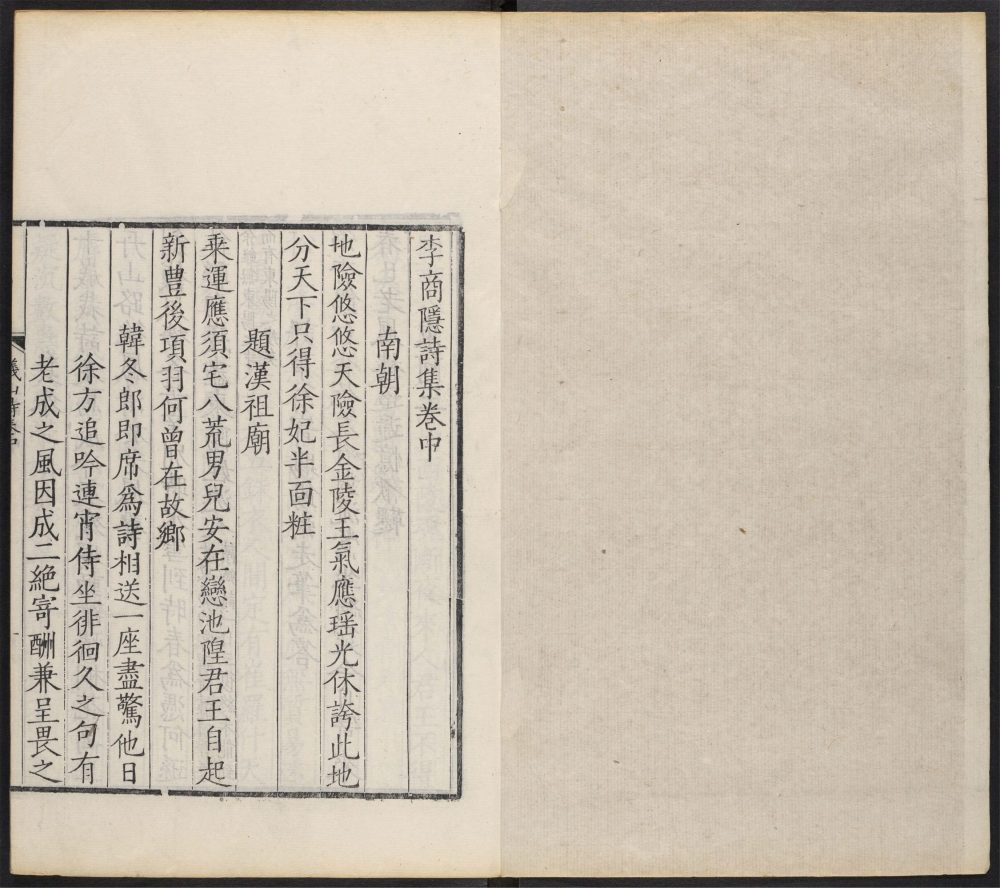 李商隱詩集卷中
南朝
地險悠悠天險長金陵王氣應瑶光休誇此地
分天下只得徐妃半面粧
題漢祖廟
乘運應須宅八荒男兒安在戀池隍君王自起
新豊後項羽何曾在故鄉
韓冬郎即席爲詩相送一座盡驚他日
徐方追吟連宵侍坐徘徊久之句有
老成之風因成二絕寄酬兼呈畏之